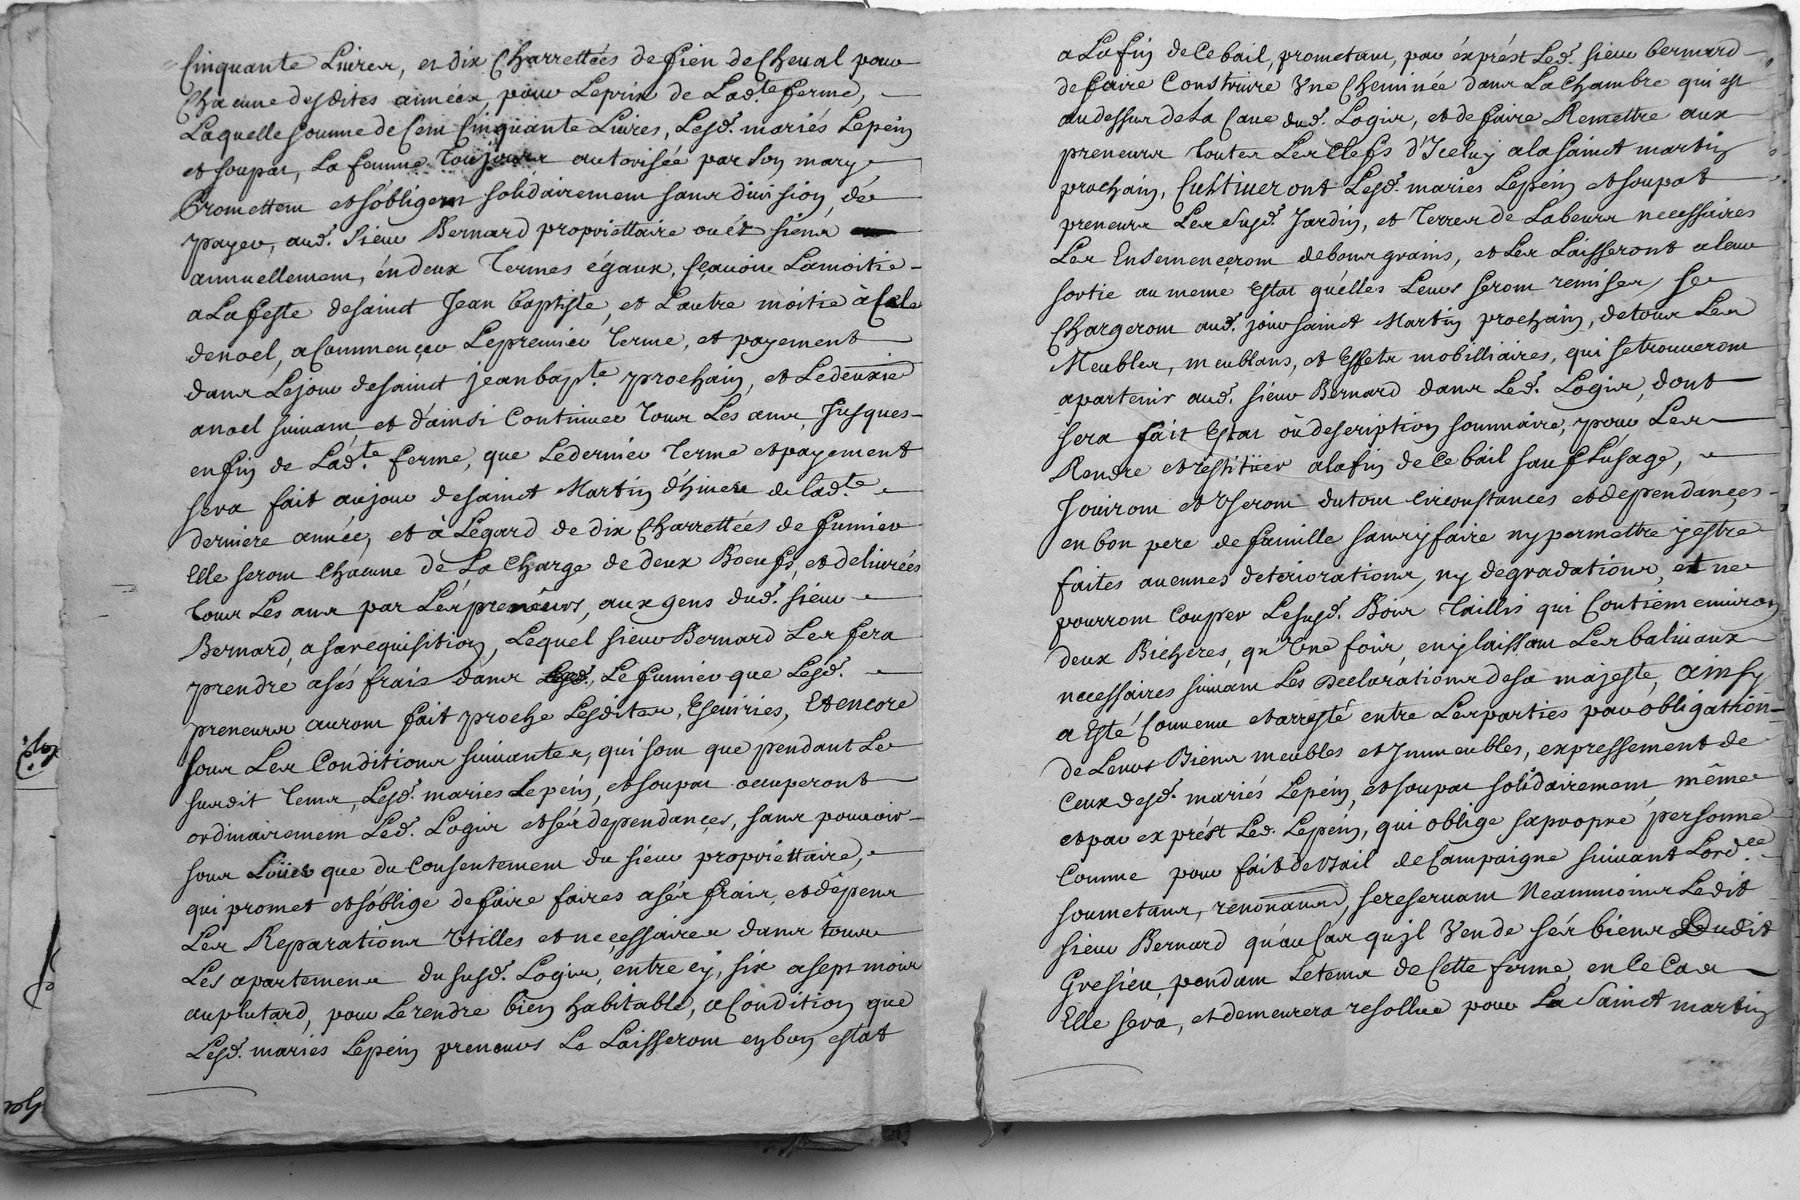 Cinquante Livres, et dix Charrettées de fien de Cheval pour
Chacune desdites années, pour Le prix de Lad.te ferme,
Laquelle somme de Cent Cinquante Livres, Lesd. mariés Lepein
et soupat, La femme Toujours autorisée par son mary
Promettent et s'obligent solidairement sans division, de
payer, aud. Sieur Bernard propriettaire ou és siens
annuellement, én deux Termes égaux, sçavoir La moitie
a La feste de sainct Jean baptiste, et L'autre moitié à Celle
de noel, a Commencer Le premier Terme, et payement
dans Le jour de sainct jean bap.te prochain, et Le deuxie
a noel suivant, et d'ainsi Continuer Tous Les ans, Jusques
en fin de Lad.te ferme, que Le dernier Terme et payement
sera fait au jour de sainct Martin d'hivert de lad.te
derniere année, et à L'egard de dix Charrettées de fumier
Elle seront Chacune de La Charge de deux Boeufs, et delivrées
Tous Les ans par Les preneurs, aux gens dud. sieur
Bernard, a sa requisition, Lequel sieur Bernard Les fera
prendre a sés frais dans Le fumier que Lesd.
preneurs auront fait proche Lesdites, Escuiries, Et encore
sous Les Conditions suivantes, qui sont que pendant Le
susdit Tems, Lesd. maries Lepein, et soupat occuperont
ordinairement Led. Logis et sés dependançes, sans pouvoir
sous Loüer que du Consentement du sieur propriettaire,
qui promet et s'oblige de faire faires a sés frais, et dépens
Les Reparations Utilles et neçessaires dans tous
Les apartemens du susd. Logis, entre cy, six a sept mois
au plutard, pour Le rendre bien habitable, a Condition que
Lesd. mariés Lepein preneurs Le Laisseront en bon estat
a La fin de Ce bail, prometant, par éxprést Led. sieur bernard
de faire Construire Une Cheminée dans La Chambre qui est
au dessus de La Cave dud. Logis, et de faire Remettre aux
preneurs Toutes Les Clefs d'Iceluy a la sainct martin
prochain, Cultiveront Lesd. maries Lepein et soupat
preneurs Les susd. Jardin, et Terres de Labeurs necessaires
Les Ensemençeront de bons grains, et Les Laisseront a leur
sortie au meme Estat qu'elles Leurs seront remises, se
Chargeront aud. jour sainct Martin prochain, de tous Les
Meubles, meublans, et Effets mobilliaires, qui se trouveront
apartenir aud. sieur Bernard dans Led. Logis, dont
sera fait Estat où description sommaire, pour Les
Rendre et restitüer a la fin de Ce bail sauf L'usage,
Jouiront et Useront du tout Circonstances et dependançes
en bon pere de famille sans y faire ny permettre y estre
faites aucunes deteriorations, ny degradations, et ne
pourront Couper Le susd. Bois Taillis qui Contient environ
deux Bichéres, qu'Une fois, en y laissant Les balivaux
necessaires suivant Les Declarations de sa majeste, Ainsy
a Esté Convenu et arresté entre Les parties par obligathion
de Leurs Biens meubles et Immeubles, expressement de
Ceux desd. mariés Lepein, et soupat solidairement, même
et par exprést Led. Lepein, qui oblige sa propre personne
Comme pour fait de Bail de Campaigne suivant L'ord.ce
soumetans, renonçans, se reservant Neammoins Ledit
sieur Bernard qu'au Cas qu'jl Vende sés biens Dudit
Gresieu, pendant Le tems de Cette ferme, en Ce Cas
Elle sera, et demeurera resollue pour La Sainct martin